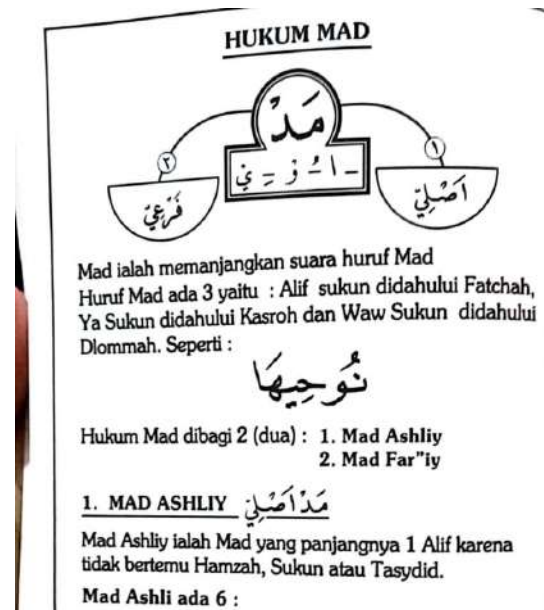 HUKUM MAD
مَدّ
ـَ ا ـُ وْ ـِ يْ
١
٢
اَصْلِيّ
فَرْعِيّ
Mad ialah memanjangkan suara huruf Mad
Huruf Mad ada 3 yaitu : Alif sukun didahului Fatchah,
Ya Sukun didahului Kasroh dan Waw Sukun didahului
Dlommah. Seperti :
نُوحِيهَا
Hukum Mad dibagi 2 (dua) : 1. Mad Ashliy
2. Mad Far"iy
1. MAD ASHLIY مَدْ اَصْلِيّ
Mad Ashliy ialah Mad yang panjangnya 1 Alif karena
tidak bertemu Hamzah, Sukun atau Tasydid.
Mad Ashli ada 6 :